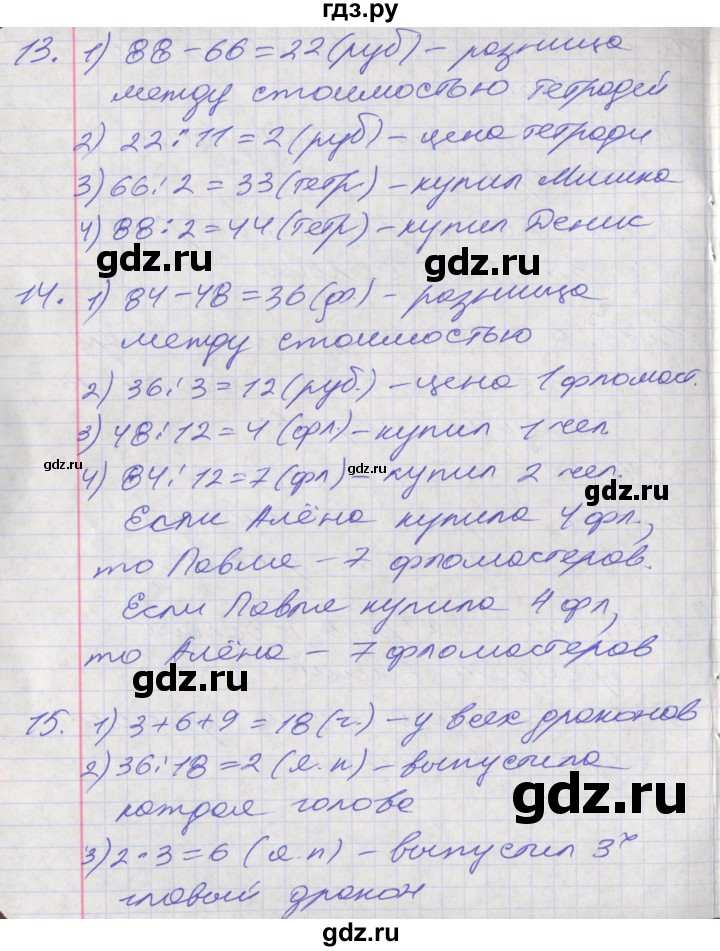 гдз.ру
13. 1) 88 - 66 = 22 (руб) - разница
между стоимостью тетрадей
2) 22 : 11 = 2 (руб) - цена тетради
3) 66 : 2 = 33 (тетр.) - купил Мишка
4) 88 : 2 = 44 (тетр) - купил Денис
gdz.ru gdz.ru
14. 1) 84 - 48 = 36 (ф) - разница
между стоимостью
2) 36 : 3 = 12 (руб.) - цена 1 фломаст.
3) 48 : 12 = 4 (фл) - купил 1 чел
gdz.ru gdz.ru
4) 84 : 12 = 7 (фл) - купил 2 чел.
gdz.ru
Если Алёна купила 4 фл,
то Павле - 7 фломастеров.
gdz.ru
Если Павле купила 4 фл,
то Алёна - 7 фломастеров
gdz.ru
15. 1) 3 + 6 + 9 = 18 (г.) - у всех драконов
2) 36 : 18 = 2 (я.п) - выпустила
каждая голова
gdz.ru
3) 2 · 3 = 6 (я.п) - выпустил 3х
главый дракон
gdz.ru